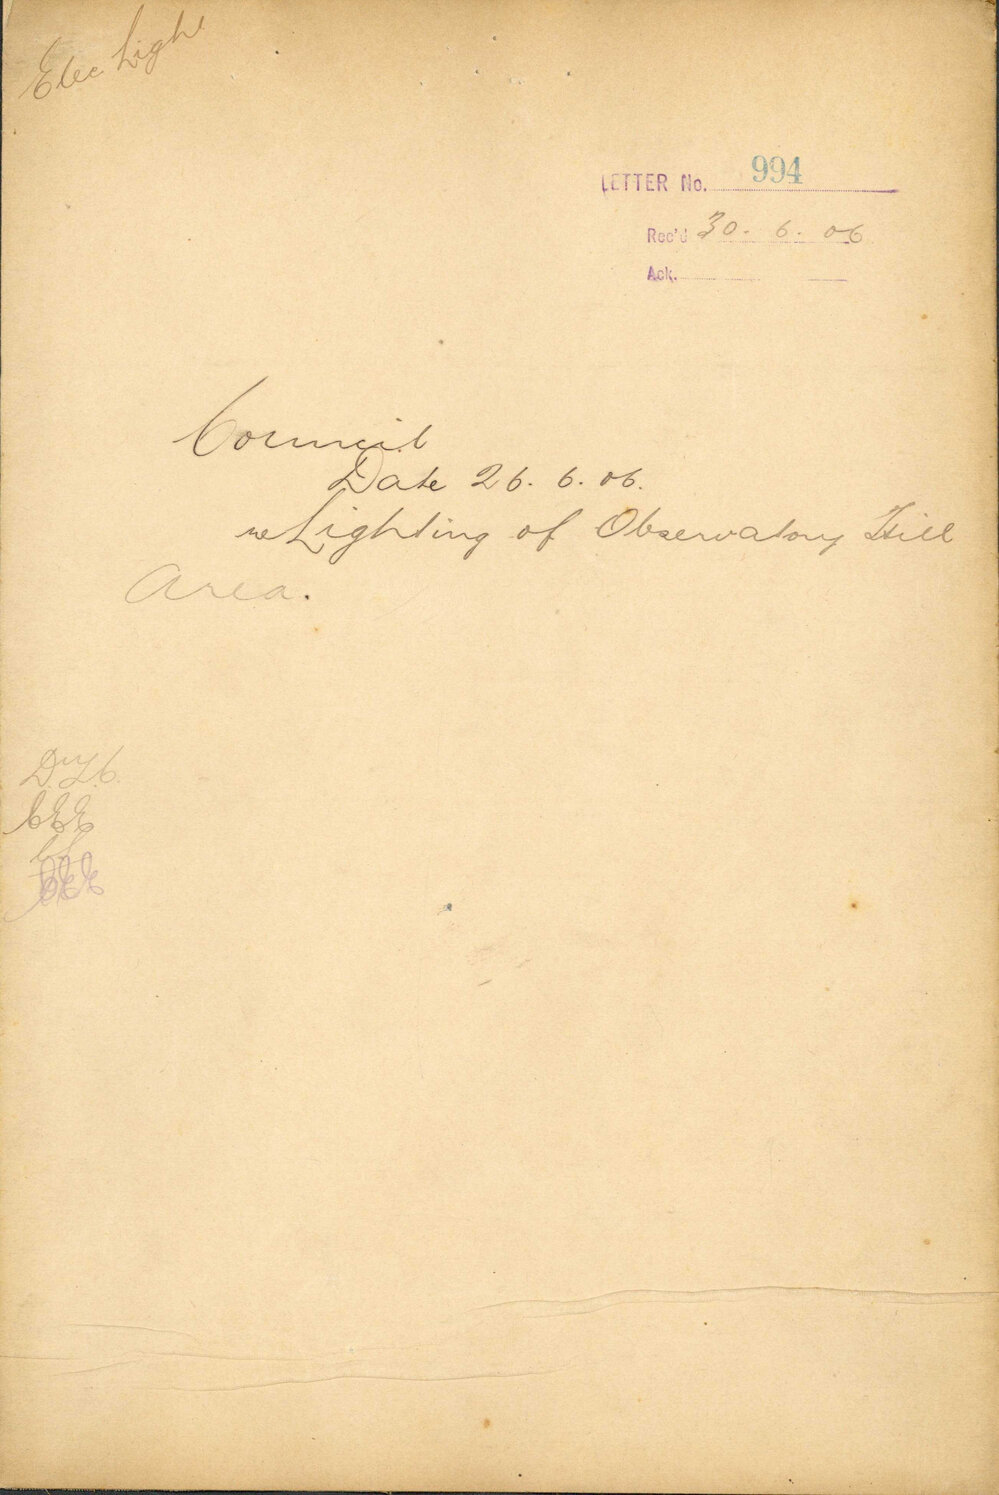 Elec Light
LETTER No. 994
Rec'd 30. 6. 06
Ack.
Council
Date 26. 6. 06.
re Lighting of Observatory Hill
Area.